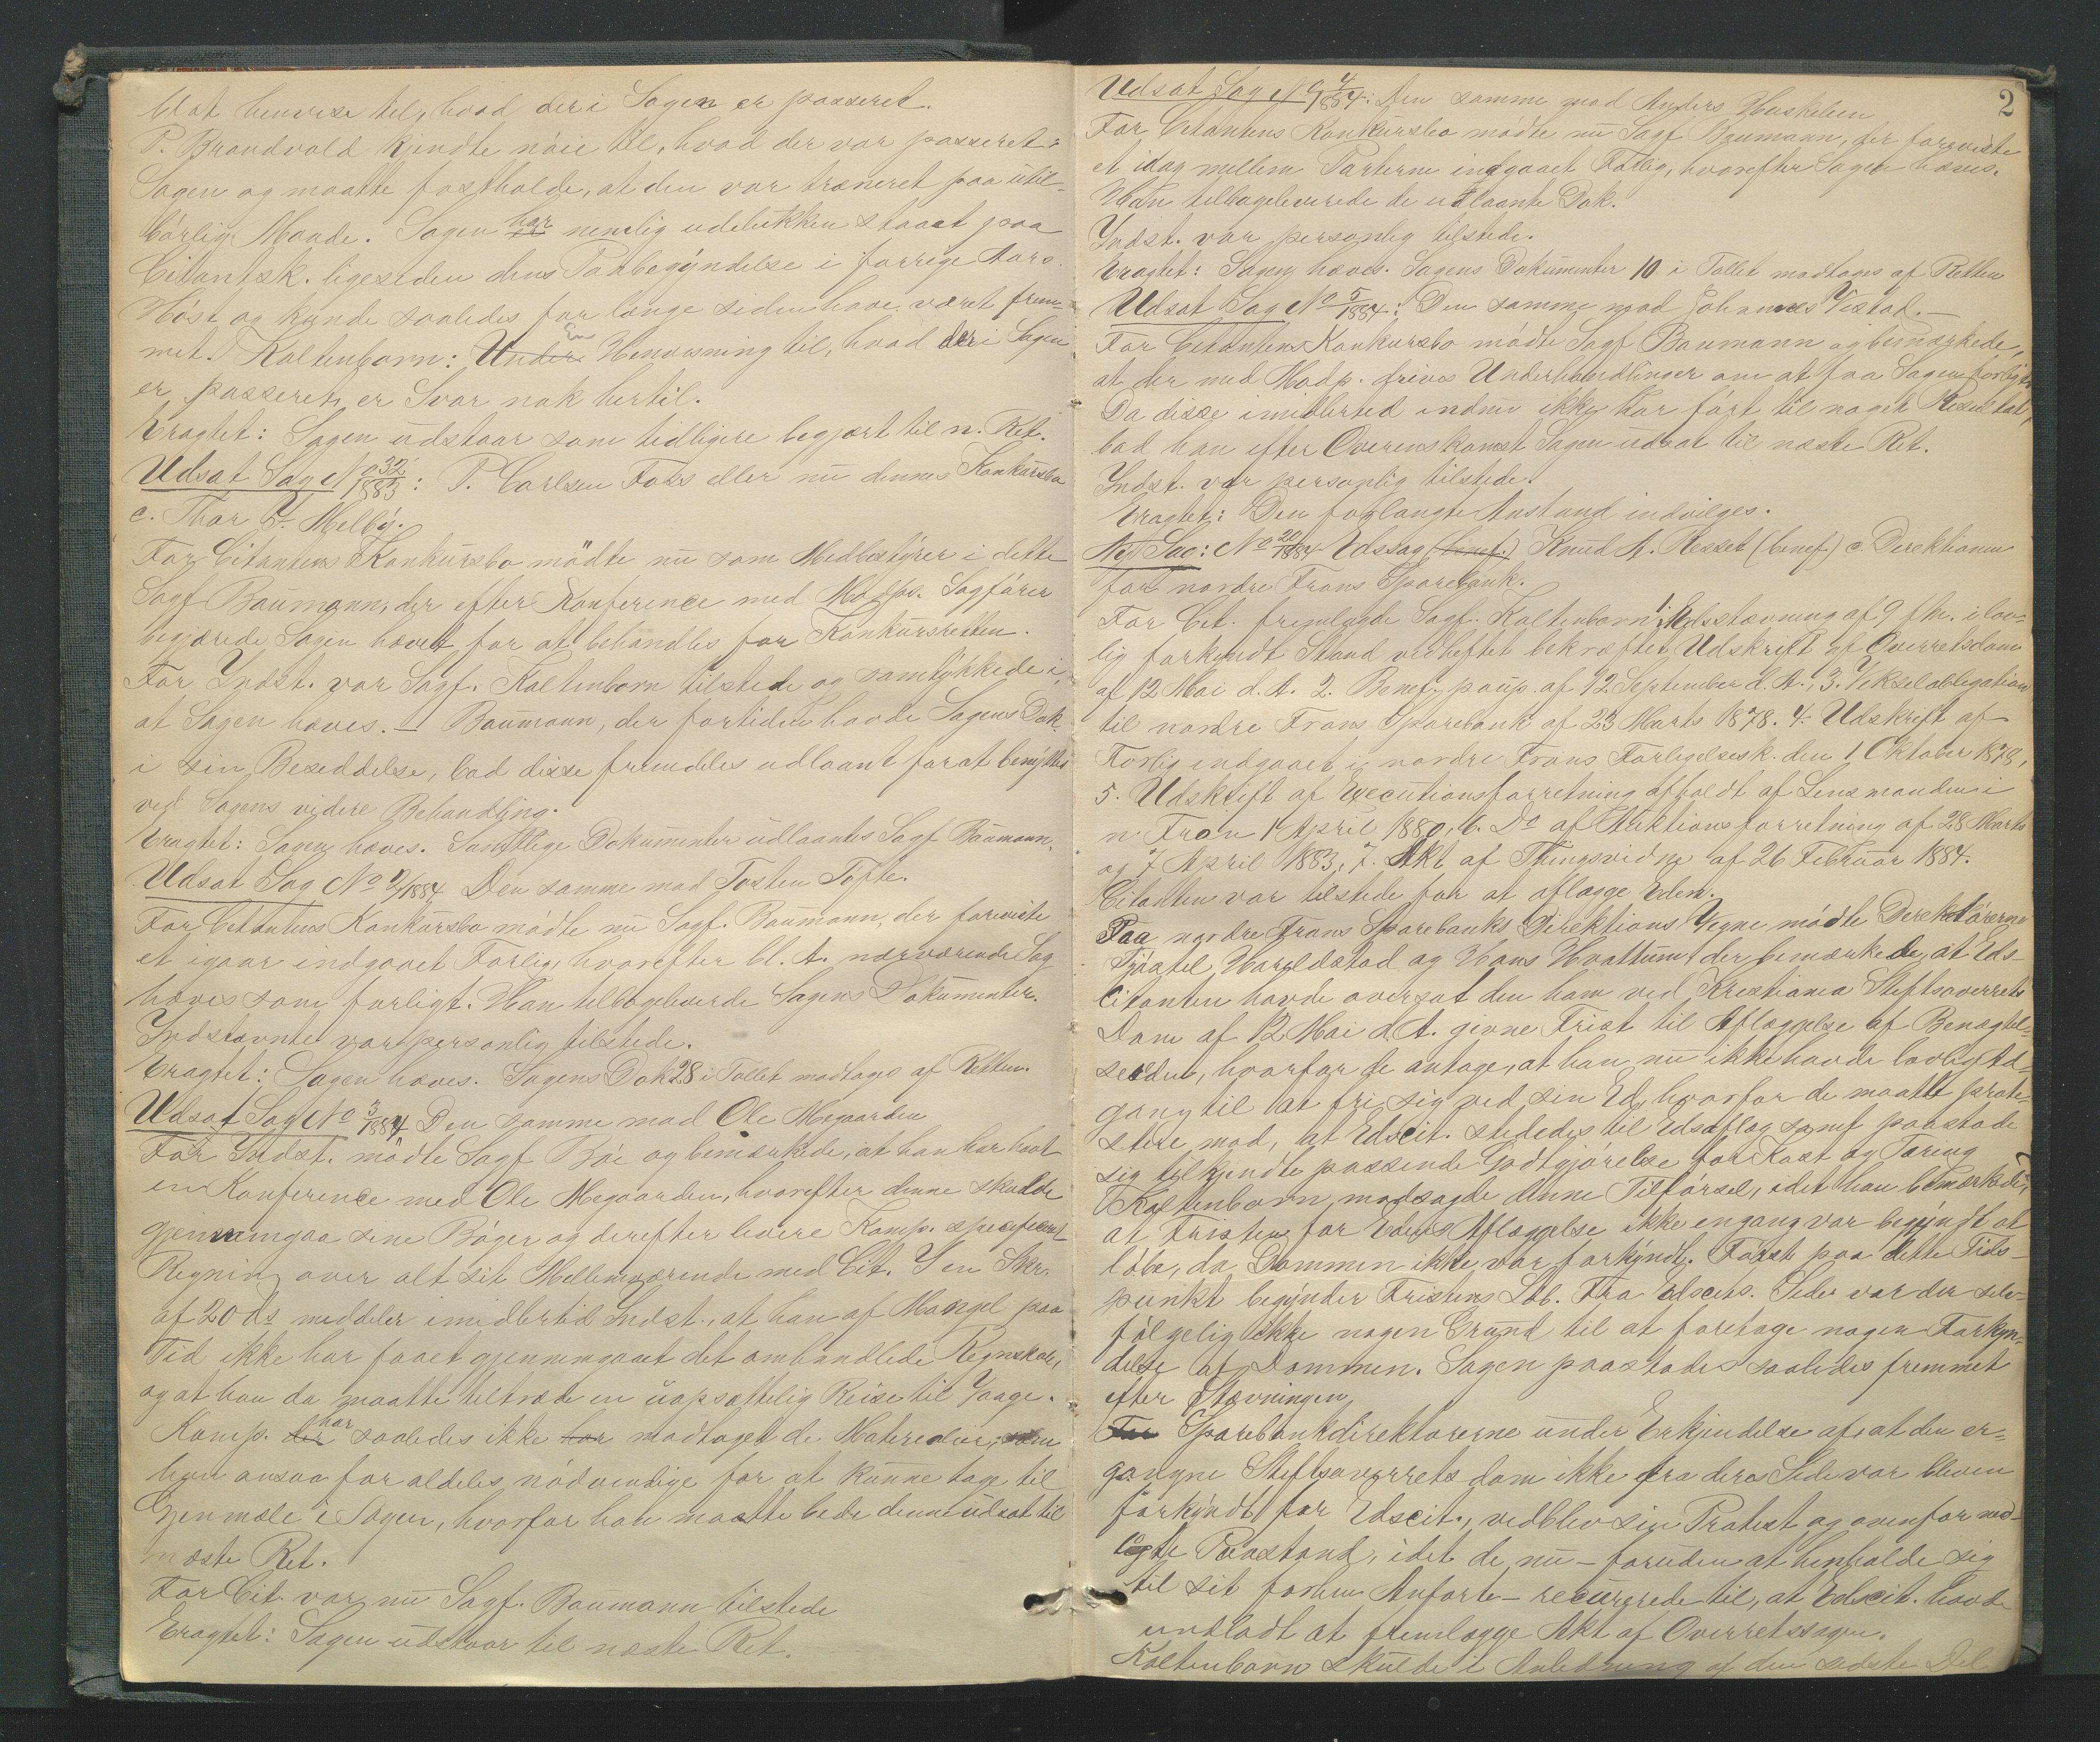 blot henvise til, hvad der i Sagen er passeret.
P. Brandvold kjendte nöie til, hvad der var passeret i
Sagen og maatte fastholde, at den var træneret paa util-
börlig Maade. Sagen har nemlig udelukkende staaet paa
Citantsk. ligesiden dens Paabegyndelse i forrige Aars
Höst og kunde saaledes for længe siden have været frem-
met. Kaltenborn: Under En Henvisning til, hvad der i Sagen
er passeret, er Svar nok hertil.
Eragtet: Sagen udstaar som tidligere begjært til n. Ret.
Udsat Sag No 32/1883: P. Carlsen Foss eller nu dennes Konkursbo
c. Thor T. Melby.
For Citantens Konkursbo mödte nu som Medbestyrer i dette
Sagf Baumann, der efter Konference med Modp. Sagförer
begjærede Sagen hævet for at behandles for Konkursretten.
For Indst. var Sagf. Kaltenborn tilstede og samtykkede i,
at Sagen hæves. - Baumann, der fortiden havde Sagens Dok.
i sin Besiddelse, bad disse fremdeles udlaant for at benyttes
ved Sagens videre Behandling.
Eragtet: Sagen hæves. Samtlige Dokumenter udlaantes Sagf Baumann.
Udsat Sag No 1/1884 Den samme mod Tosten Tofte.
For Citantens Konkursbo mödte nu Sagf. Baumann, der foreviste
et igaar indgaaet Forlig, hvorefter bl. A. nærværende Sag
hæves som forligt. Han tilbageleverede Sagens Dokumenter.
Indstævnte var personlig tilstede.
Eragtet: Sagen hæves. Sagens Dok 28 i Tallet modtages af Retten.
Udsat Sag No 3/1884 Den samme mod Ole Megaarden
For Indst. mödte Sagf Böe og bemærkede, at han har havt
en Konference med Ole Megaarden, hvorefter denne skulde
gjennemgaa sine Böger og derefter levere Komp. specificeret
Regning over alt sit Mellemværende med Cit. I en Skr.
af 20 ds meddeler imidlertid Indst., at han af Mangel paa
Tid ikke har faaet gjennemgaaet det omhandlede Regnskab,
og at han da maatte tiltræde en uopsættelig Reise til Vaage.
Komp. der har saaledes ikke har modtaget de Materialier, som
han ansaa for aldeles nödvendige for at kunne tage til
Gjenmæle i Sagen, hvorfor han maatte bede denne udsat til
næste Ret.
For Cit. var nu Sagf. Baumann tilstede
Eragtet: Sagen udstaar til næste Ret.
2
Udsat Sag No 4/1884: Den samme mod Anders Huskelien
For Citantens Konkursbo mödte nu Sagf Baumann, der foreviste
et idag mellem Parterne indgaaet Forlig, hvorefter Sagen hæves.
Han tilbageleverede de udlaante Dok.
Indst. var personlig tilstede.
Eragtet: Sagen hæves. Sagens Dokumenter 10 i Tallet modtages af Retten
Udsat Sag No 5/1884: Den samme mod Johannes Vestad. -
For Citantens Konkursbo mödte Sagf Baumann og bemærkede,
at der med Modp. drives Underhandlinger om at faa Sagen forligt.
Da disse imidlertid endnu ikke har fört til noget Resultat,
bad han efter Overenskomst Sagen udsat til næste Ret.
Indst. var personlig tilstede.
Eragtet: Den forlangte Anstand indvilges.
Ny Sag: No 20/1884 Edssag (benef.) Knud A. Resset (benef.) c. Direktionen
for nordre Frons Sparebank.
For Cit. fremlagde Sagf. Kaltenborn 1. Edsstævning af 9 f M. i lov-
lig forkyndt Stand vedheftet bekræftet Udskrift af Overretsdom
af 12 Mai d. A. 2. Benef. paup. af 12 September d. A., 3. Vekselobligation
til nordre Frons Sparebank af 23 Marts 1878. 4. Udskrift af
Forlig indgaaet i nordre Frons Forligelsesk. den 1 Oktober 1878,
5. Udskrift af Executionsforretning afholdt af Lensmanden i
n Fron 1 April 1880, 6. Do af Auktionsforretning af 28 Marts
og 7 April 1883, 7. Akt af Thingsvidne af 26 Februar 1884.
Citanten var tilstede for at aflægge Eden.
Paa nordre Frons Sparebanks Direktions Vegne mödte Direktörerne
Haroldstad og Hans Hvattum, der bemærkede, at Eds-
citanten havde oversat den ham ved Kristiania Stiftsoverrets
Dom af 12 Mai d. A. givne Frist til Aflæggelse af Benægtel-
seseden, hvorfor de antage, at han nu ikke havde lovlig Ad-
gang til at fri sig ved sin Ed, hvorfor de maatte prote-
stere mod, at Edscit. stededes til Edsaflæg samt paastode
sig tilkjendte passende Godtgjörelse for Kost og Tæring
Kaltenborn modsagde denne Tilförsel, idet han bemærkede,
at Fristen for Edens Aflæggelse ikke engang var begyndt at
löbe, da Dommen ikke var forkyndt. Förest paa dette Tids-
punkt begynder Fristens Löb. Fra Edscits. Side var der selv-
fölgelig ikke nogen Grund til at foretage nogen Forkyn-
delse af Dommen. Sagen paastodes saaledes fremmet
efter Stævningen.
For Sparebankdirektörerne under Erkjendelse af, at den er-
gangne Stiftsoverretsdom ikke fra deres Side var bleven
forkyndt for Edscit., vedblev sin Protest og ovenfor ned-
lagte Paastand, idet de nu - foruden at henholde sig
til sit forhen Anförte - recurerede til, at Edscit. havde
undladt at fremlægge Akt af Overretssagen.
Kaltenborn skulde i Anledning af den sidste Del